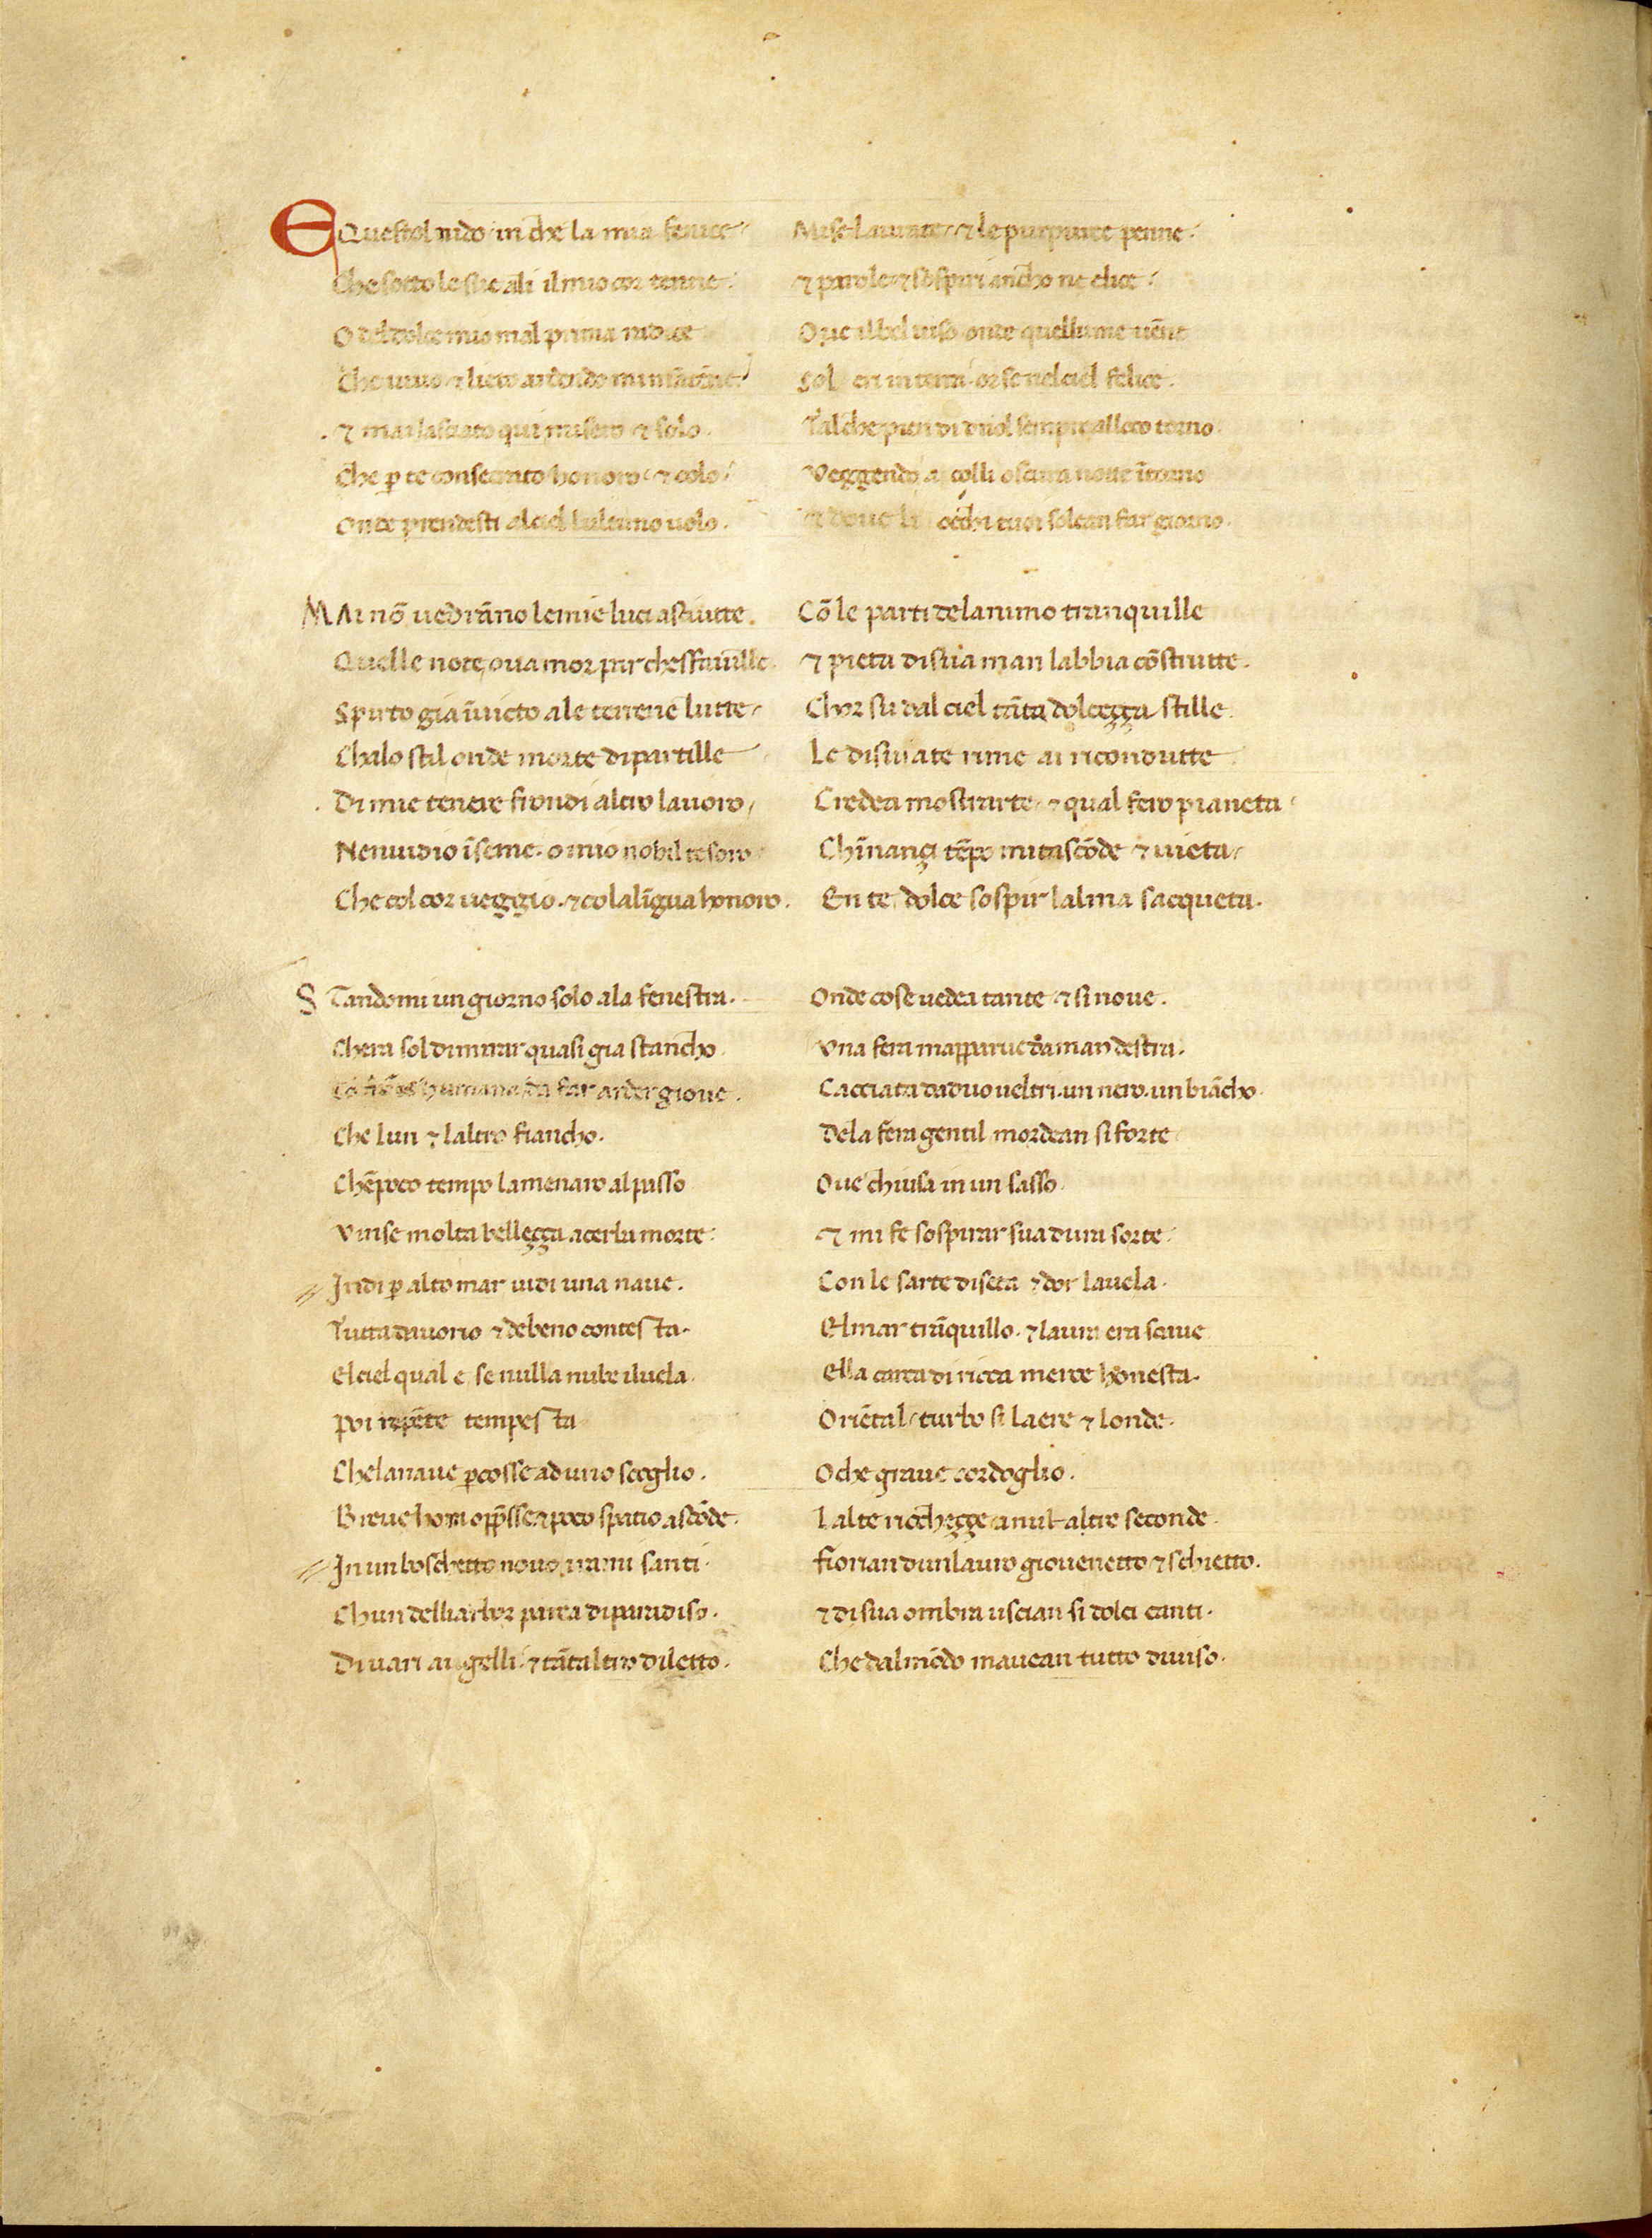 E Questol nido in che la mia fenice Mise laurate ⁊ le purpuree penne.
Che sotto le sue ali il mio cor tenne ⁊ parole ⁊ sospiri ancho ne elice
O del dolce mio mal prima radice Oue il bel uiso onde quel lume uẽne
Che uiuo ⁊ lieto ardendo mi mãtẽne Sol eri in terra. or se nel ciel felice.
⁊ mai lasciato qui misero ⁊ solo. Tal che pien di duol sempre al loco torno.
Che ꝑ te consecrato honoro ⁊ colo Veggendo a colli oscura notte ĩtorno
Onde prendesti al ciel lultimo uolo. ⁊ doue li occhi tuoi solean far giorno.
MAi nõ uedrãno le mie luci asciutte. Cõ le parti de lanimo tranquille
Quelle note, ouamor par che sfauille. ⁊ pieta di sua man labbia cõstrutte.
Spirto gia ĩuicto a le terrene lutte Chor su dal ciel tãta dolceçça stille.
Chalo stil onde morte dipartille Le disuiate rime ai ricondutte
Di mie tenere frondi altro lauoro Credea mostrarte. ⁊ qual fero pianeta
Nenuidio ĩseme. o mio nobil tesoro Chĩnançi tẽpo mi tascõde ⁊ uieta
Che col cor ueggio. ⁊ co la lĩgua honoro. En te dolce sospir lalma sacqueta.
S Tandomi un giorno solo a la fenestra. Onde cose uedea tante ⁊ si noue.
Chera sol di mirar quasi gia stancho Vna fera mapparue da man destra.
humana da far arder gioue. Cacciata da duo ueltri. un nero. un biãcho.
Che lun ⁊ laltro fiancho. Dela fera gentil mordean si forte
Chẽ poco tempo la menaro al passo Oue chiusa in un sasso.
Vinse molta belleçça acerba morte. ⁊ mi fe sospirar sua dura sorte.
Indi ꝑ alto mar uidi una naue. Con le sarte di seta ⁊ dor la uela.
Tutta dauorio ⁊ debeno contesta. El mar trãquillo. ⁊ laura era soaue
El ciel qual e se nulla nube il uela. Ella carca di ricca merce honesta.
Poi repẽte tempesta Oriẽtal turbo si laere ⁊ londe.
Che la naue ꝑcosse ad uno scoglio. O che graue cordoglio.
Breue hora opp̃sse ⁊ poco spatio ascõde. Lalte ricchecçe a nul altre seconde.
In un boschetto nouo i rami santi. Fiorian dun lauro giouenetto ⁊ schietto.
Chun delli arbor parea di paradiso. ⁊ di sua ombra uscian si dolci canti.
Di uari augelli. ⁊ tãtaltro diletto. Che dal mõdo mauean tutto diuiso.